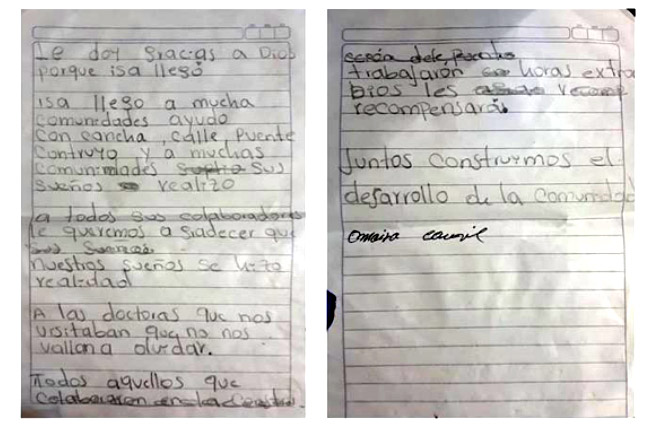 Le doy gracias a Dios
porque isa llegó
isa llego a mucha
comunedades ayudo
con cancha, calle, Puente
Contruyo y a muchas
comunidades sus
sueños realizo
a todos sus colaboradores
le queremos a gradecer que
sus sueños
nuestros sueños se hizo
realidad
A las doctoras que nos
visitaban que no nos
vallan a olvidar.
Todos aquellos que
colaboraron en la
trabajaron horas extra
Dios les
recompensará.
Juntos construymos el
desarrollo de la comunidad
Omaira